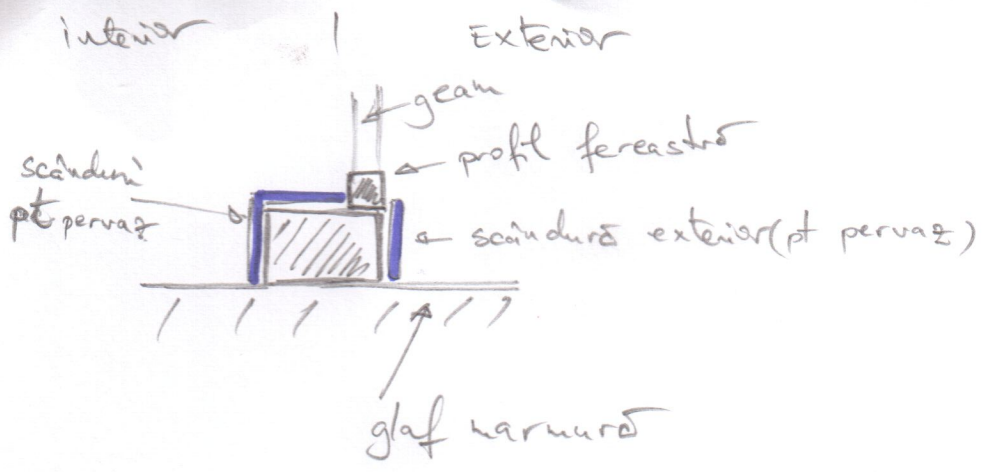 interior
Exterior
geam
profil fereastră
scânduri
pt pervaz
scândură exterior (pt pervaz)
glaf marmură